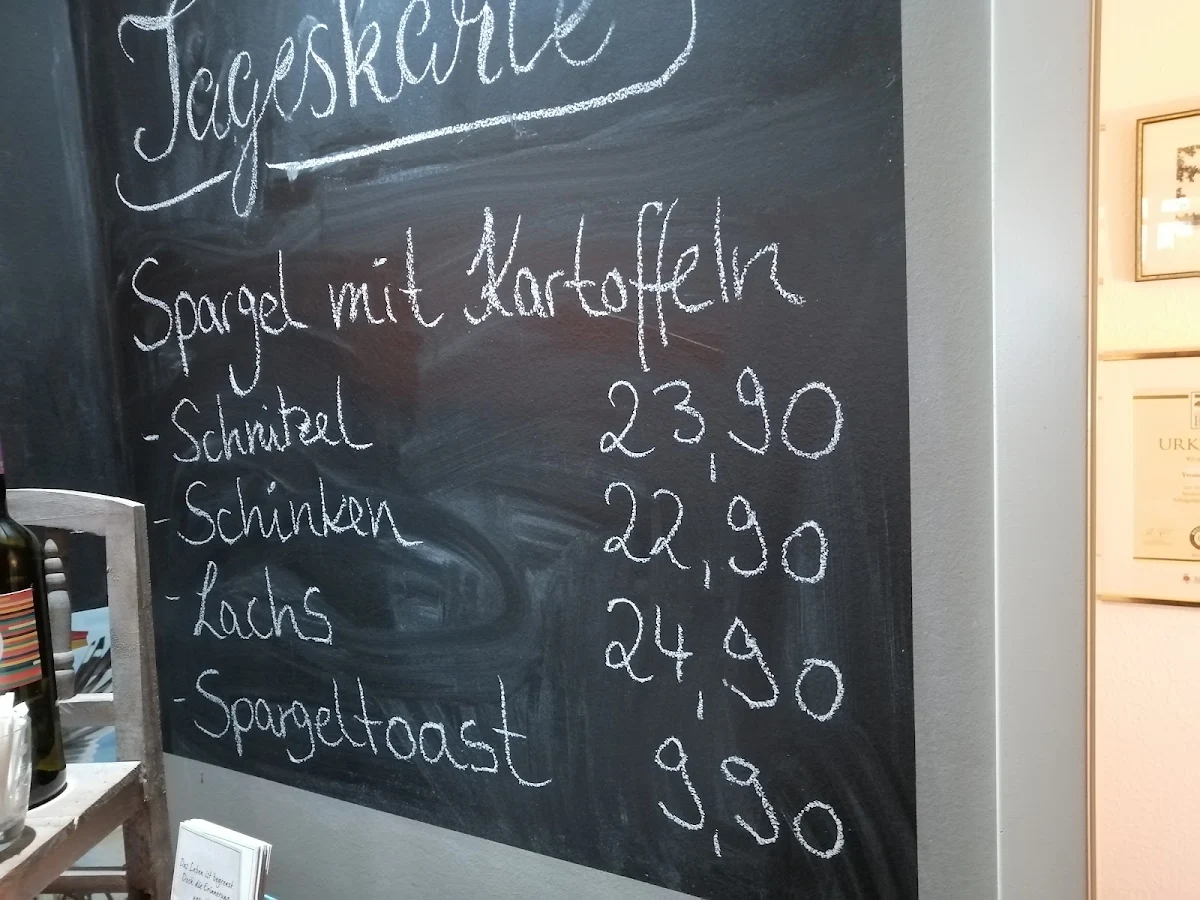 Tageskarte
Spargel mit Kartoffeln
- Schnitzel 23,90
- Schinken 22,90
- Lachs 24,90
- Spargeltoast 9,90
Das Leben ist begrenzt
Doch die Erinnerung
URK